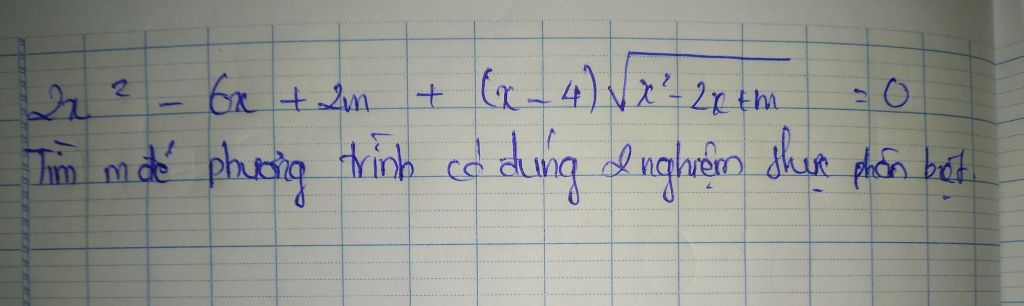 2x² - 6x + 2m + (x - 4)√x² - 2x + m = 0
Tìm m để phương trình có đúng 2 nghiệm thực phân biệt.